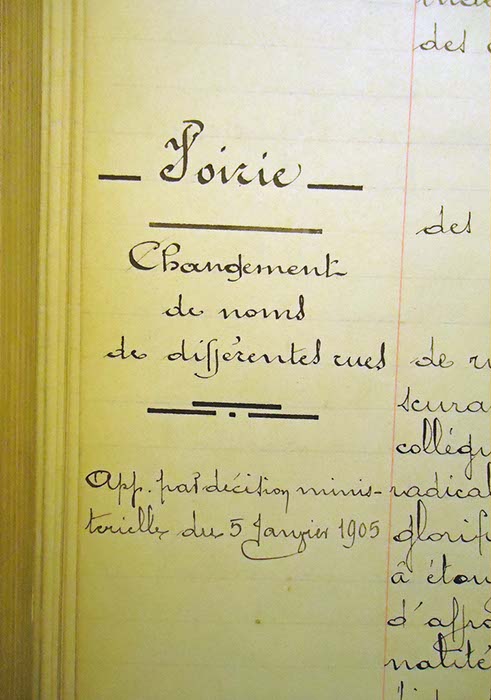 Voirie
Changement
de noms
de différentes rues
App. par décision minis-
térielle du 5 Janvier 1905
des
des
de
scura
collégu
radical
glorif
à étou